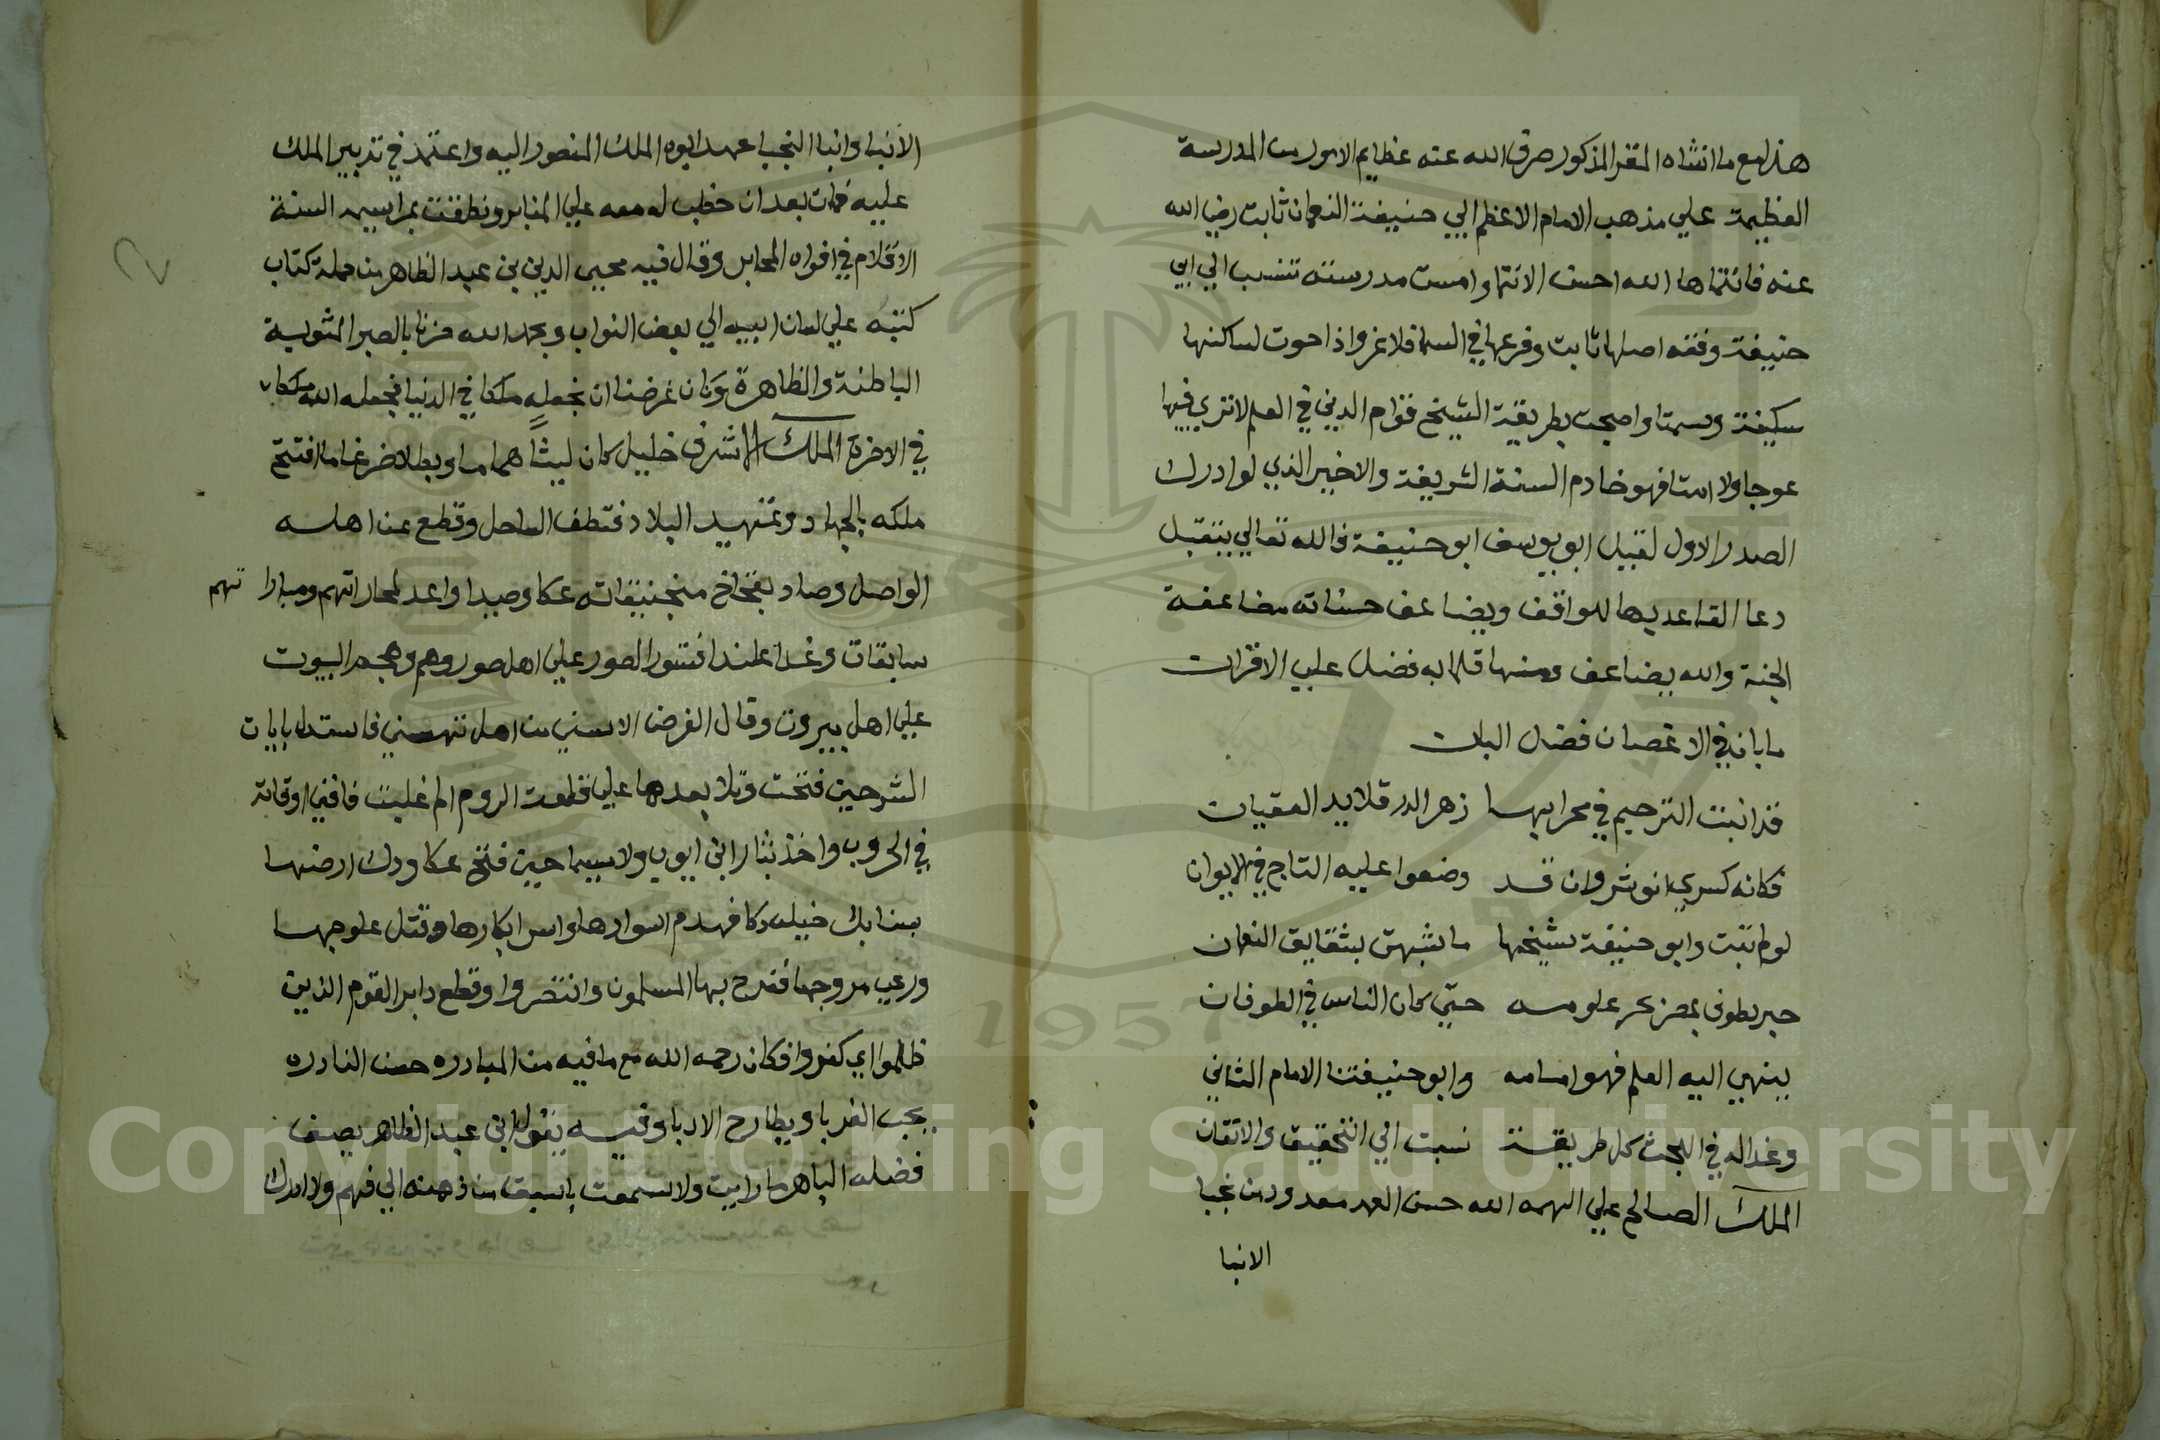 هذا مع ما انشاه المقر المذكور صرف الله عنه عظايم الامور من المدرسة
العظيمة علي مذهب الامام الاعظم ابي حنيفة النعمان ثابت رضي الله
عنه فانتماها الله احسن الانتما وامست مدرسته تنسب الي ابي
حنيفة وفقه اصلها ثابت وفرعها في السما فلا غرو اذا حوت لساكنها
سكينة وسمتا واصبحت بطريقة الشيخ قوام الدين في العلم لا تري فيها
عوجا ولا امتا فهو خادم السنة الشريفة والاخير الذي لو ادرك
الصدر الاول لقيل ابو يوسف ابو حنيفة والله تعالي يتقبل
دعا القاعد بها للواقف ويضاعف حسناته مضاعفة
الجنة والله يضاعف ومنها قلما به فضل علي الاقران
ما بان في الاغصان فضل البان
قد انبت الترخيم في محرابها زهر الدر قلايد العقيان
فكانه كسري انوشروان قد وضعوا عليه التاج في الايوان
لو لم تبت وابو حنيفة شيخها ما شبهت بشقايق النعمان
حبر يطوف بمصر بحر علومه حتي كان الناس في الطوفان
ينهي اليه العلم فهو امامه وابو حنيفتنا الامام الثاني
وغدا له في البحث كل طريقة نسبت الي التحقيق والاتقان
الملك الصالح علي الهمه الله حسن العهد معدود من نجبا
الابنا
الابنا وابنا النجبا عهد ابوه الملك المنصور اليه واعتمد في تدبير الملك
عليه فمات بعد ان خطب له معه علي المنابر ونطقت بمراسيمه السنة
الاقلام في افواه المحابر وقال فيه محيي الدين بن عبد الظاهر من جملة كتاب
كتبه علي لسان ابيه الي بعض النواب وبحمد الله حزنا بالصبر المثوبة
الباطنة والظاهرة وكان غرضنا ان نجعله ملكا في الدنيا فجعله الله ملكا
في الاخرة الملك الاشرف خليل كان ليثا هماما وبطلا ضرغاما افتتح
ملكه بالجهاد وتمهيد البلاد فقطف الساحل وقطع عن اهله
الواصل وصاد بفخاخ منجنيقاته عكا وصيدا واعد لمحاراتهم ومبارا تهم
سابقات وغدا عندا فتسور السور علي اهل صور وهم وهجم البيوت
علي اهل بيروت وقال الفرض الاسني من اهل تنهسني فاستدل بايات
الشرحين فتحت وتلا بعدها علي قلعة الروم الم غلبت فافني اوقاته
في الحروب واخذ بثار ابن ايوب ولا سيما حين فتح عكا ودك ارضها
بسنابك خيله دكا فهدم اسوارها واسر ابكارها وقتل علوجها
ورعب مروجها ففرح بها المسلمون وانتصروا وقطع دابر القوم الذين
ظلموا اي كفروا فكان رحمه الله مع ما فيه من المبادره حسن النادره
يحب الغربا ويطارح الادبا وفيه يقول ابن عبد الظاهر يصف
فضله الباهر ما رايت ولا سمعت باسبق من ذهنه الي فهم ولا ادرك
Copyright © King Saud University
1957